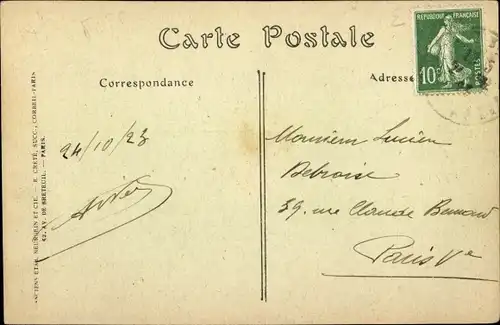 Carte Postale
REPUBLIQUE FRANÇAISE
10
POSTES
Correspondance
Adresse
24/10/23
Monsieur Lucien
Debroise
39, rue Claude Bernard
Paris Ve
ANCIENS ETAB. NEURDEIN ET CIE. — E. CRÉTÉ, SUCC., CORBEIL-PARIS
52, AV. DE BRETEUIL. — PARIS.